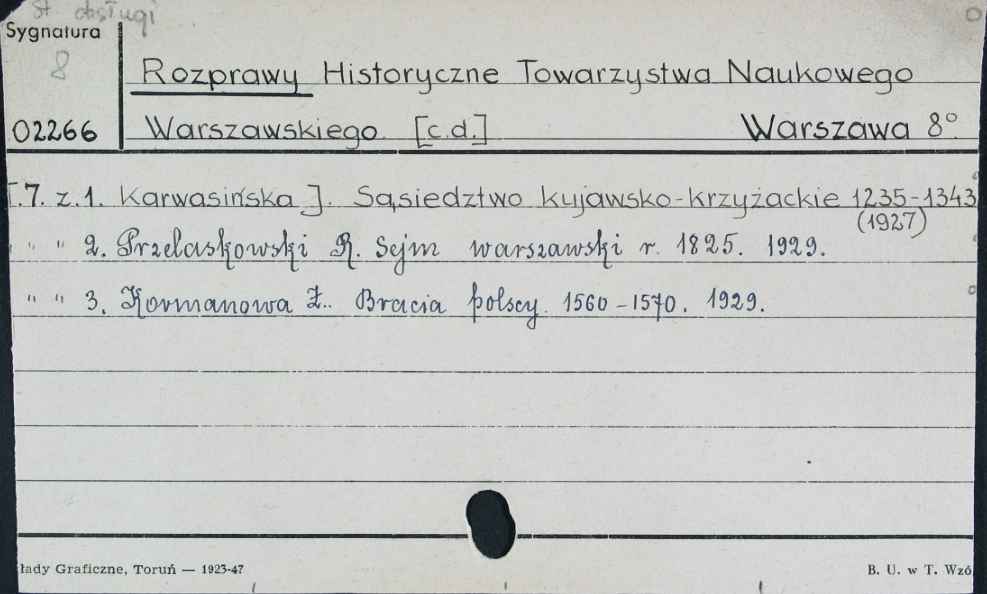 st obsługi
Sygnatura
8
Rozprawy Historyczne Towarzystwa Naukowego
02266 Warszawskiego [c.d.] Warszawa 8°.
T.7. z.1. Karwasińska J. Sąsiedztwo kujawsko-krzyżackie 1235-1343
(1927)
" " 2. Przelaskowski R. Sejm warszawski r. 1825. 1929.
" " 3. Kormanowa Ż.. Bracia polscy. 1560-1570. 1929.
łady Graficzne, Toruń — 1923-47
B. U. w T. Wzó